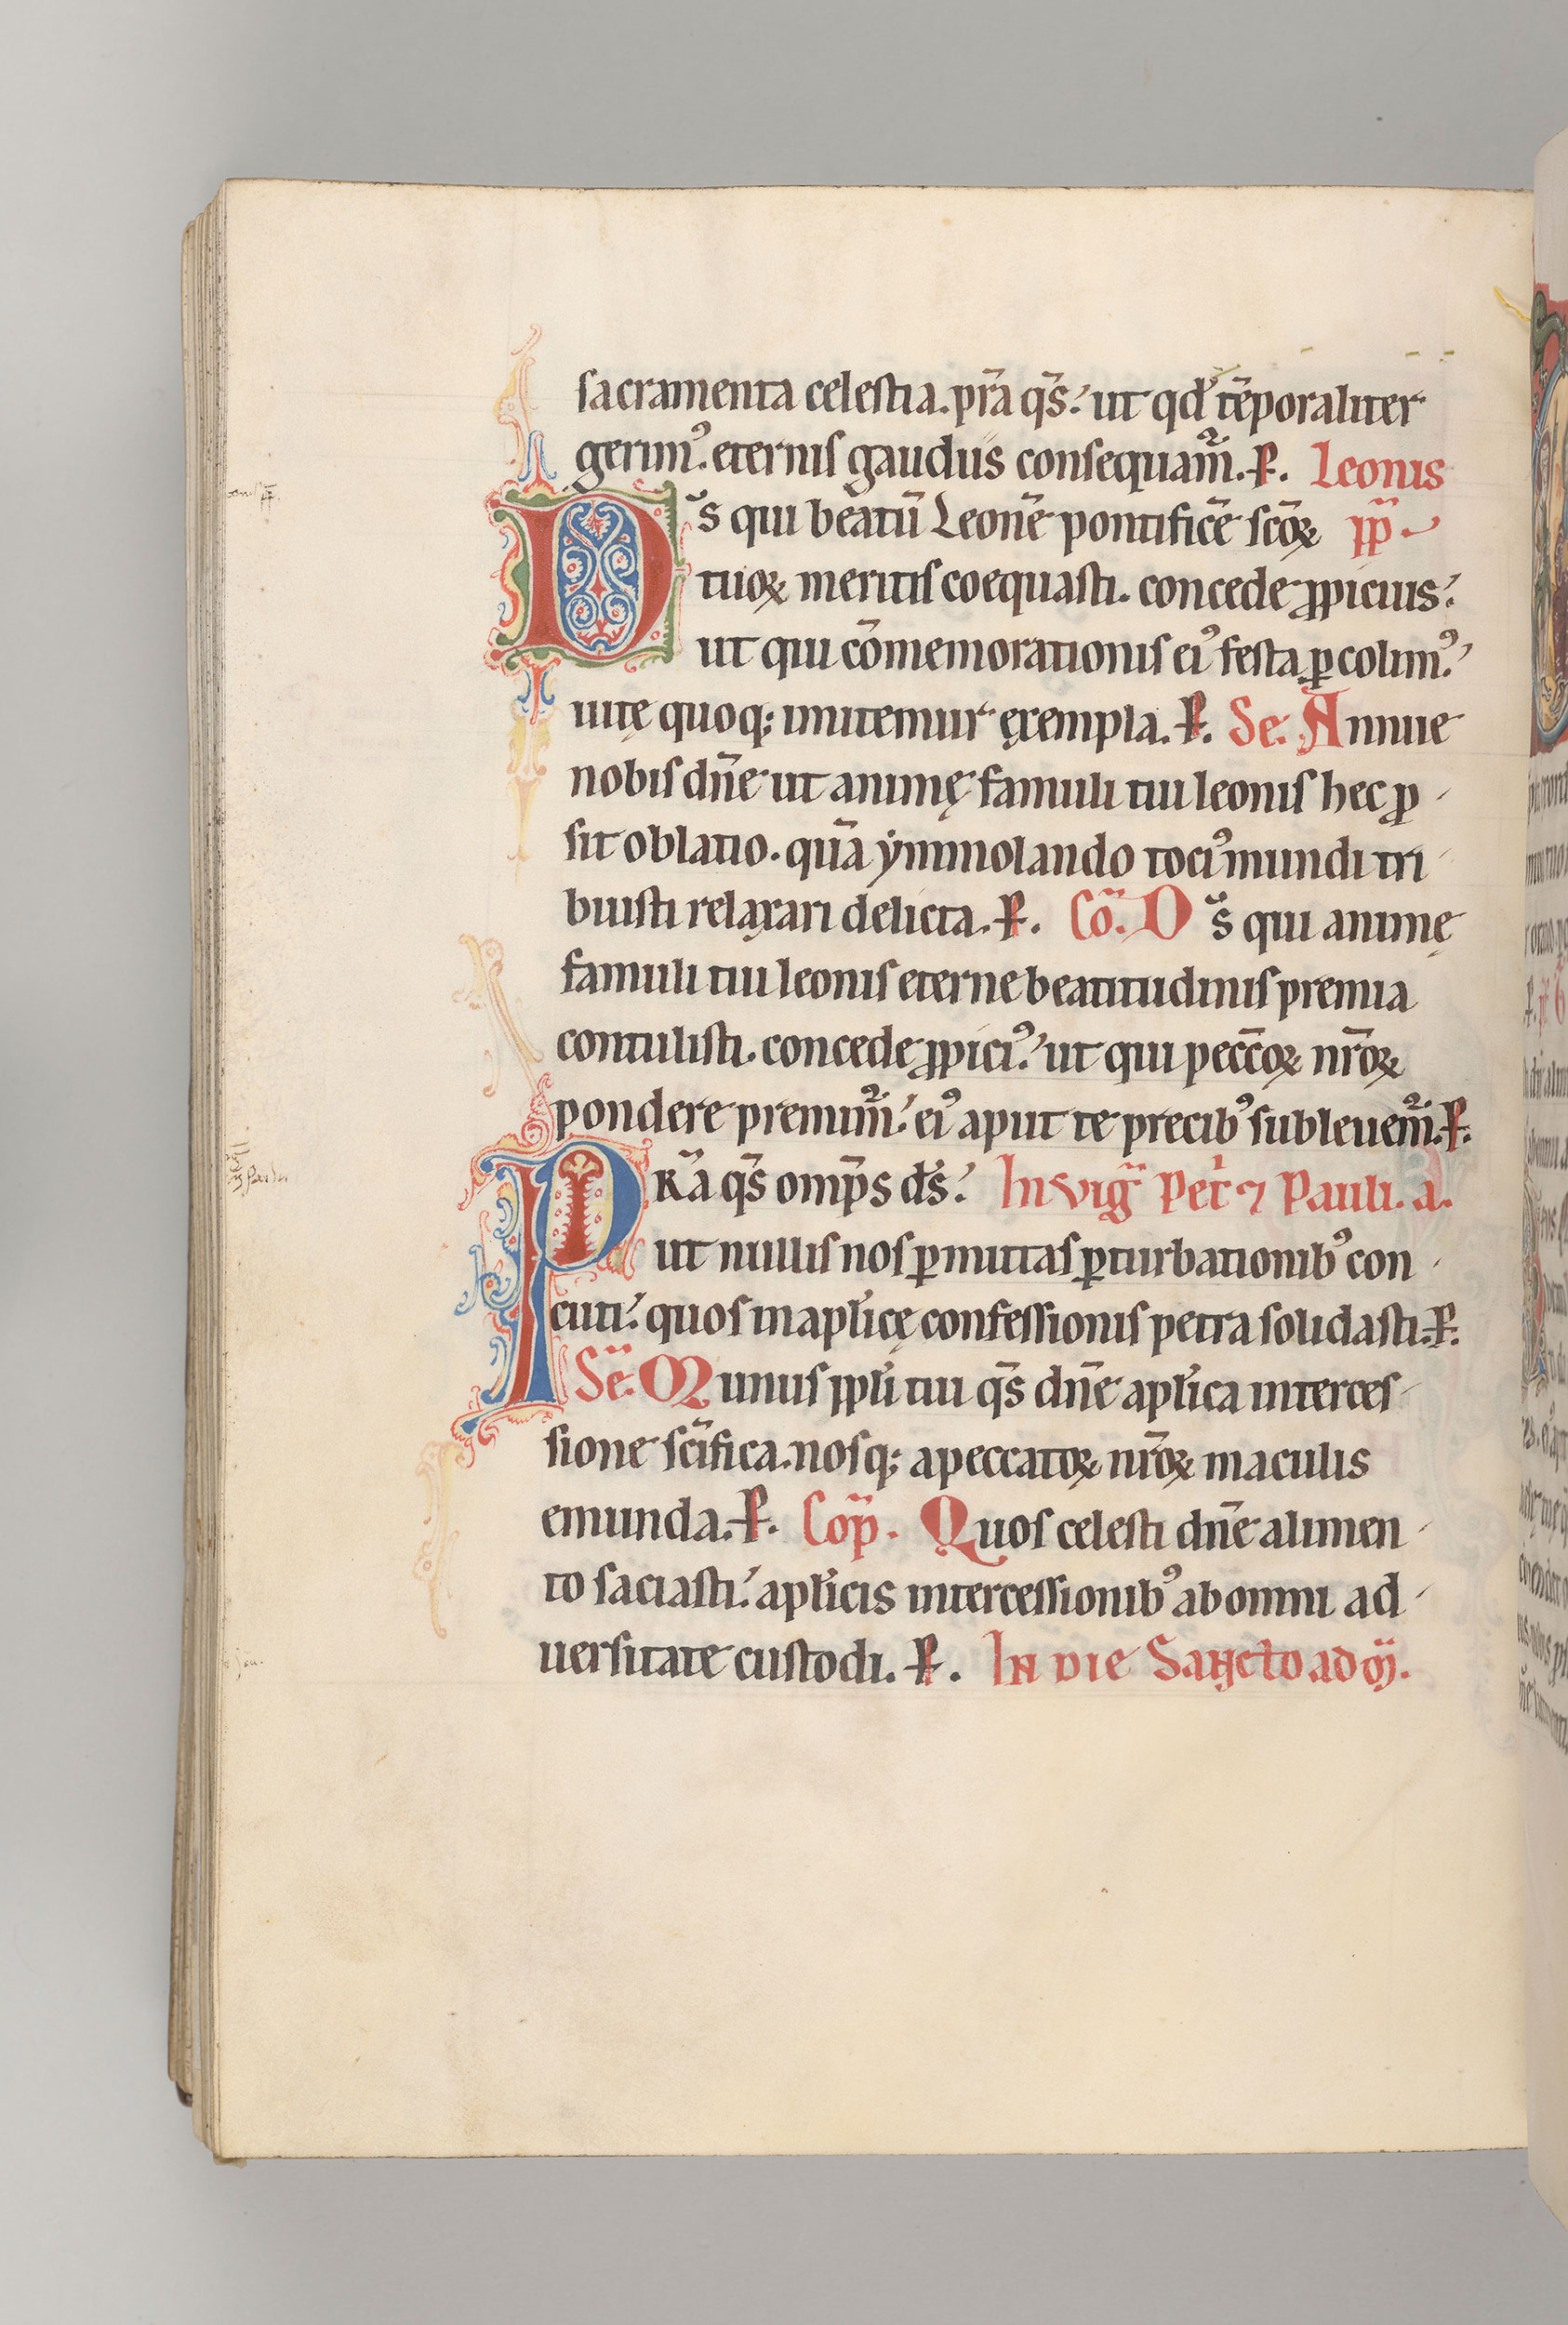 sacramenta celestia. pr̄a qs̄. ut qd̓ tēporaliter
gerimꝰ. eternis gaudiis consequam̃. P. Leonis
D s̄ qui beatū Leonē pontificē scōꝝ pp̄
tuoꝝ meritis coequasti. concede ꝓpicius.
ut qui cōmemorationis eiꝰ festa ꝑcolimꝰ.
uitę quoq; imitemur exempla. P. Se. Annue
nobis dn̄e ut animę famuli tui leonis hec ꝓ
sit oblatio. quā ẏmmolando tociꝰ mundi tri
buisti relaxari delicta. P. Cō. D s̄ qui animę
famuli tui leonis eterne beatitudinis premia
contulisti. concede ꝓpiciꝰ. ut qui peccōꝝ nr̄oꝝ
pondere premim̃. eiꝰ aput te precibꝰ subleuem̃. P.
P Rā qs̄ omp̄s ds̄. In vig̃ Pet̓ ⁊ Pauli. a.
ut nullis nos ꝑmittas ꝑturbationibꝰ con
cuti. quos in apl̓icę confessionis petra solidasti. P.
Se. Munus ppl̓i tui qs̄ dn̄e apl̓ica interces
sione scīfica. nosq; a peccatoꝝ nr̄oꝝ maculis
emunda. P. Cop̄. Quos celesti dn̄e alimen
to saciasti. apl̓icis intercessionibꝰ ab omni ad
uersitate custodi. P. In die Sancto ad